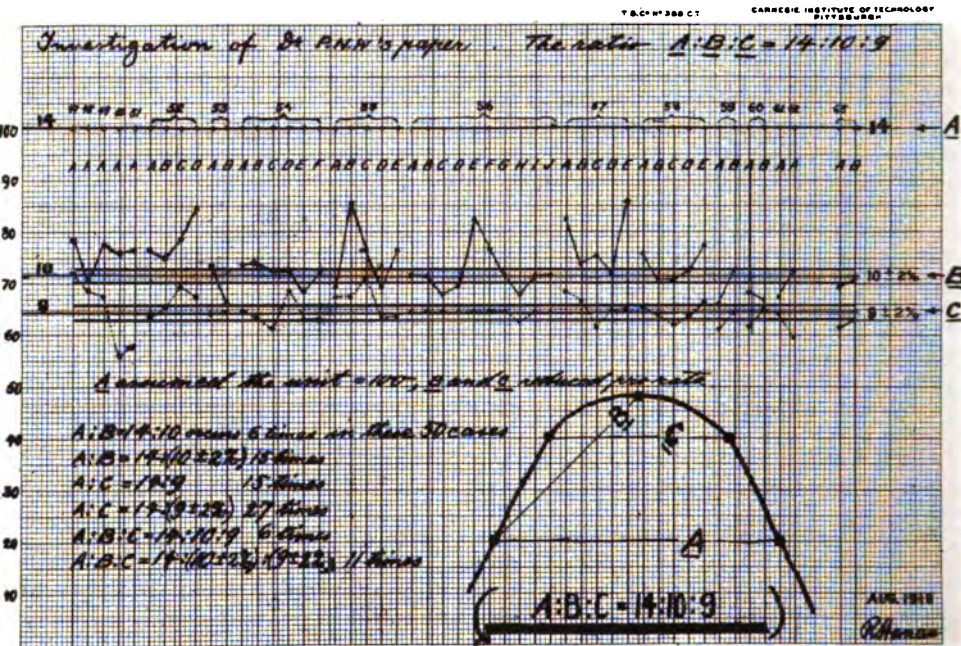 T.B.Co. No 388 C.T.
CARNEGIE INSTITUTE OF TECHNOLOGY
PITTSBURGH
Investigation of Dr P.N.N's paper. The ratio A:B:C = 14:10:9
52 53 54 55 56 57 58 59 60
100 14 14 A
A A A A A A B C D A B A B C D E F A B C D E A B C D E F G H I J A B C D E A B C D E A B A B A A A B
90
80
10 10 ± 2% B
70
9 9 ± 2% C
60
A assumed the unit = 100, B and C reduced pro rata
50
A:B = 14:10 occurs 6 times in these 50 cases
40
A:B = 14:(10±2%) 15 times
A:C = 14:9 15 times
30
A:C = 14:(9±2%) 27 times
A:B:C = 14:10:9 6 times
20
A:B:C = 14:(10±2%):(9±2%) 11 times
10
B
C
A
(A:B:C = 14:10:9)
AUG. 1918